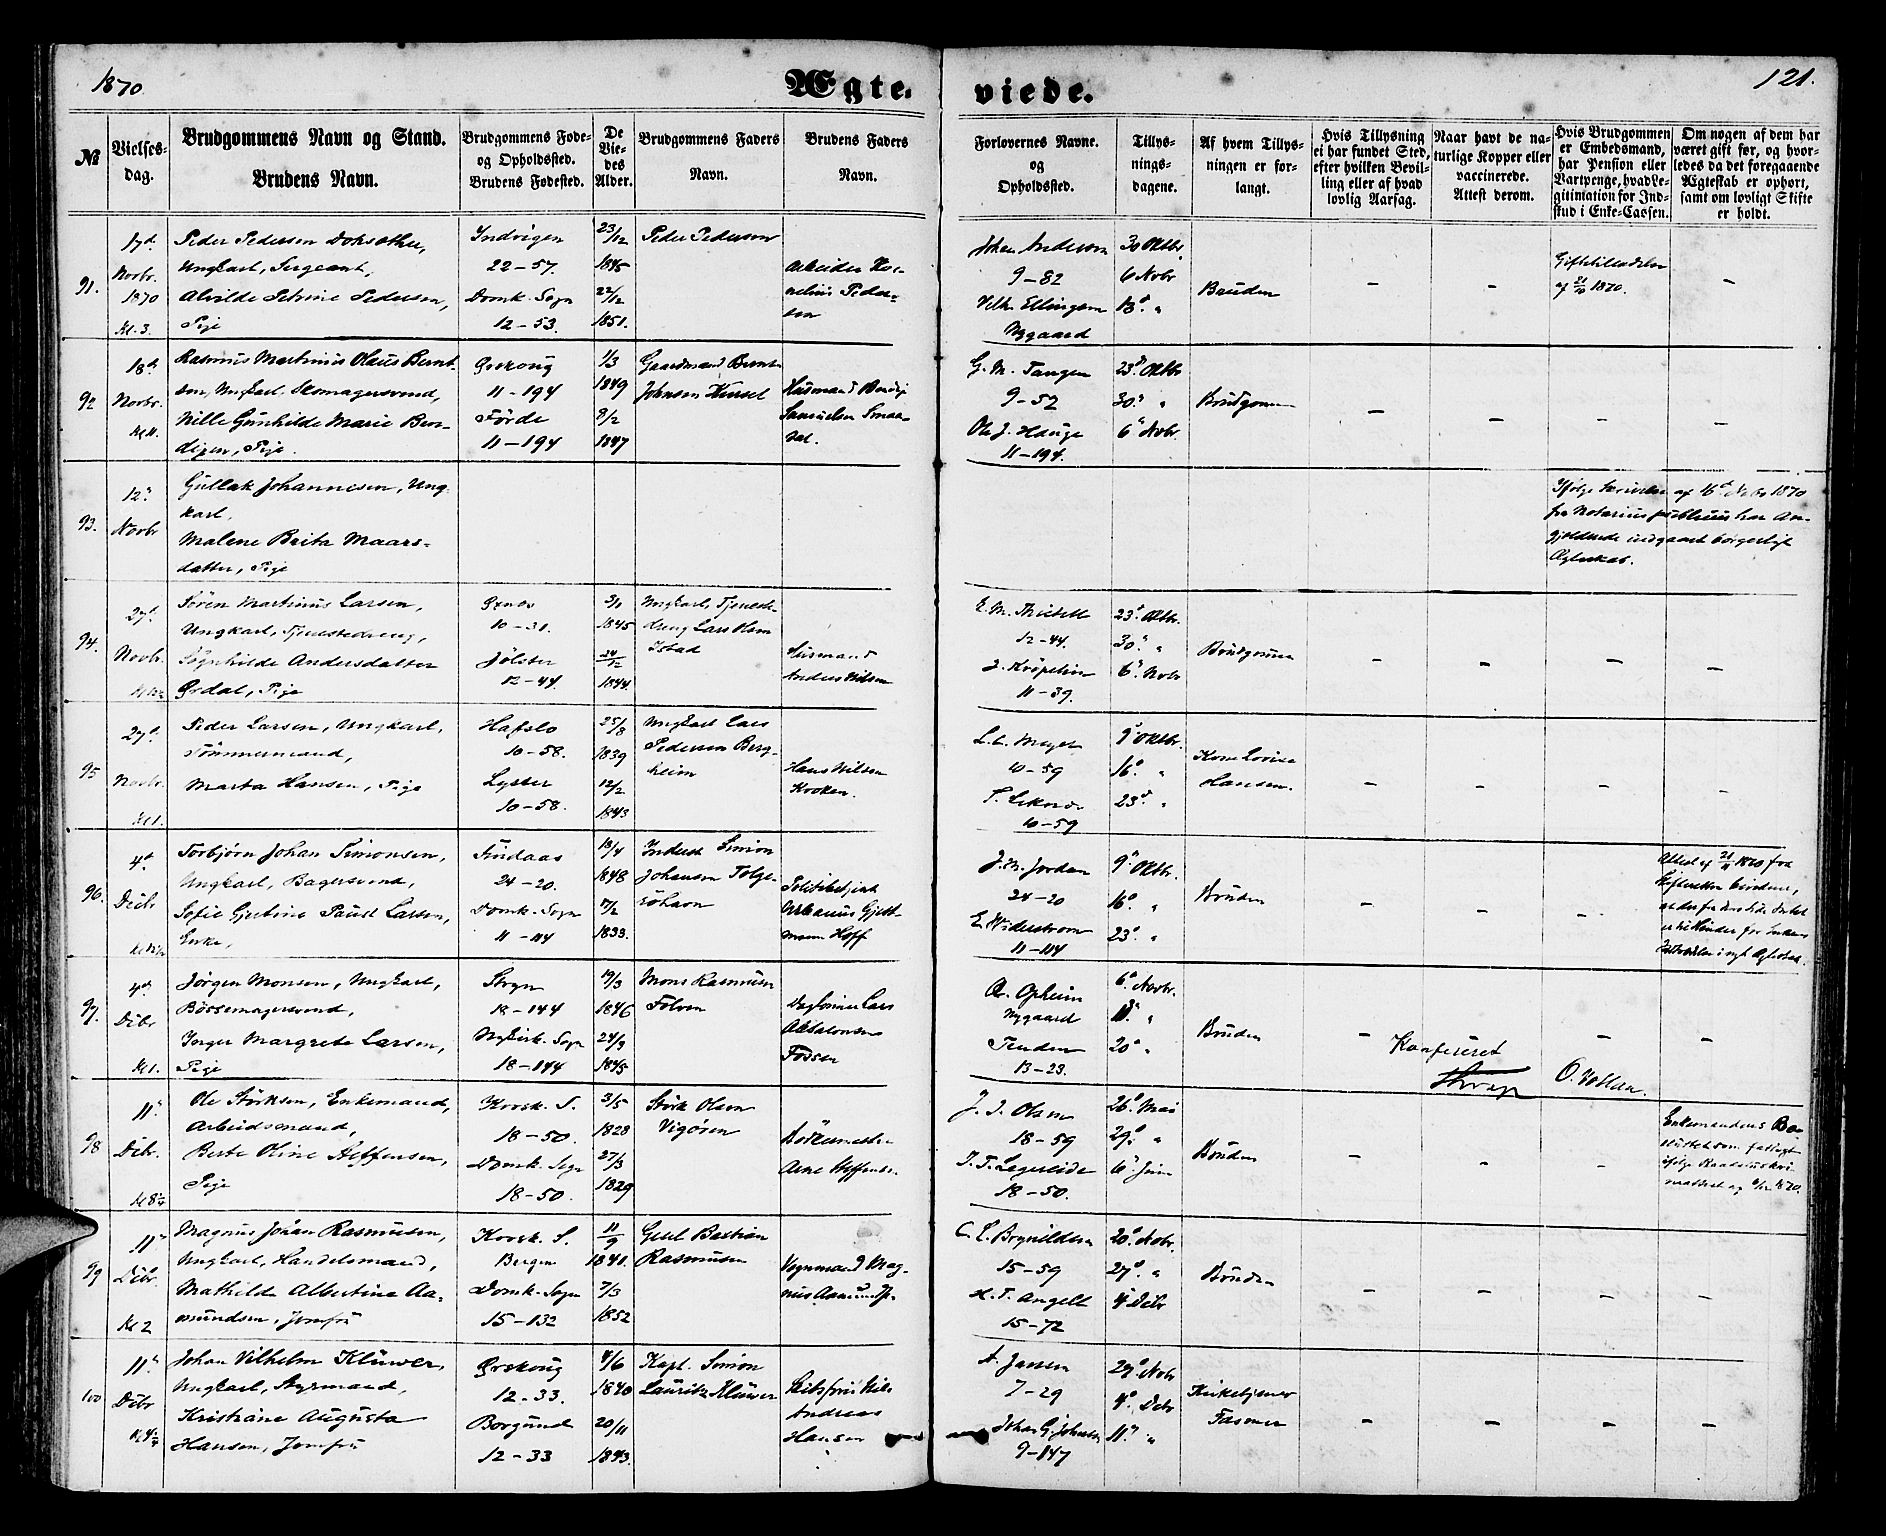 1870
Ægte-
viede.
121.
№
Vielses-
dag.
Brudgommens Navn og Stand.
Brudens Navn.
Brudgommens Føde-
og Opholdssted.
Brudens Fødested.
De
Vie-
des
Alder.
Brudgommens Faders
Navn.
Brudens Faders
Navn.
Forlovernes Navne.
og
Opholdssted.
Tillys-
nings-
dagene.
Af hvem Tillys-
ningen er for-
langt.
Hvis Tillysning
ei har fundet Sted,
efter hvilken Bevil-
ling eller af hvad
lovlig Aarsag.
Naar havt de na-
turlige Kopper eller
vaccinerede.
Attest derom.
Hvis Brudgommen
er Embedsmand,
har Pension eller
Vartpenge, hvad Le-
gitimation for Ind-
skud i Enke-Cassen.
Om nogen af dem har
været gift før, og hvor-
ledes da det foregaaende
Ægteskab er ophørt,
samt om lovligt Skifte
er holdt.
91.
17d.
Novbr.
1870
Kl. 3.
Peder Pedersen
Ungkarl, Sergeant,
Alvilde Petrine Pedersen,
Pige
Indvigen
22-57.
Domk. Sogn
12-53.
23/12
1845
22/12
1851.
Peder Pedersen
Arbeider Kor-
nelius Peder-
sen
Johan Andersen
9-82
Vilh. Ellingsen
Nygaard
30 Oktbr.
6 Novbr
13d. "
Bruden
-
-
Giftetilladelse
1870.
-
92
18d
Novbr.
Kl 11.
Rasmus Martinus Olaus Bernt-
sen, Ungkarl. Skomagersvend,
Nille Gunhilde Marie Ben-
digen, Pige.
Ørskoug
11-194
Förde
11-194
1/3
1849
8/2
1847
Gaardmand Bernt
Johnsen
Husmand Bendix
Samuelsen
G. M. Tangen
9-52
Ole J. Hauge
11-194.
23d Oktbr
30. "
6 Nobr.
Brudgom
-
-
-
-
93.
12.
Novbr
Gullak Johannesen, Ung-
karl,
Malene Brita Maars-
datter, Pige
Ifölge Skrivelse af 16d Novbr 1870
fra Notarius publicus har An-
gjeldende indgaaet borgerligt
Ægteskab.
94.
27d.
Novbr.
Søren Martinus Larsen,
Ungkarl, Tjenestedreng,
Søgnhilde Andersdatter
Ørdal, Pige
10-31.
Jölster
12-44.
3/1
1845
24/12
1844.
Ungkarl, Tjeneste-
dreng Lars Olsen
Istad
Husmand
Anders Nilsen
12-44.
11-39.
23d Oktbr.
30. "
6. Nobr
Brudgommen
-
-
-
-
95
27d.
Novbr.
Kl 1.
Peder Larsen, Ungkarl,
Tömmermand,
Marta Hansen, Pige
Hafslo
10-58.
Lyster
10-58.
25/8
1839
12/2
1843
Ungkarl Lars
Pedersen Berg-
heim
Hans Nilsen
Kroken.
L. L. Meyer
10-59
10-59
9 Oktbr.
16d. "
23d. "
Kone Lovise
Hansen.
-
-
-
-
96.
4d
Debr
Torbjörn Johan Simonsen,
Ungkarl, Bagersvend,
Sofie Gjertine Paust Larsen,
Enke,
Findaas
24-20.
Domk. Sogn
11-114
13/4
1848
17/2
1833.
Inderst Simon
Johansen
Politibetjent
Urbanus Gjert-
sen Hoff
J. M. Jordan
24-20
E. Widerstrøm
11-114
9. Oktbr.
16d. "
23d. "
Bruden
-
-
-
Attest af 21/11 1870 fra
97.
4d.
Debr
Kl 1.
Jörgen Monsen, Ungkarl,
Bössemagersvend,
Inger Margrete Larsen,
Pige
Stryn
18-144
Nykirk. Sogn
18-144
19/3
1846
24/9
1845
Mons Rasmusen
Folven
Lars
Absalonsen
Fossen
A. Opheim
Nygaard
Tenden
13-23.
6d Novbr.
13. "
20d "
Bruden
-
Konfereret
O. Vollan.
-
-
98
11.
Debr.
Ole Störksen, Enkemand,
Arbeidsmand,
Berte Oline Steffensen,
Pige
Korsk. S.
18-50.
Domk. Sogn
18-50.
3/5
1828
27/3
1829
Störk Olsen
Vigören
Arne Steffensen
J. J. Olsen
18-59
18-50.
26d Mai
29d. "
6. Juni
Bruden
-
-
-
Enkemandens Bo
1870.
99
11.
Debr.
Kl 2
Magnus Johan Rasmusen,
Ungkarl, Handelsmand,
Mathilde Albertine Aa-
mundsen, Jomfru
Korsk. S.
Bergen
Domk. Sogn
15-132
11/9
1841.
7/3
1852
Bastian
Rasmusen
Vognmand Mag-
nus Aamundsen
C. L. Brynildsen
15-59
H. T. Angell
15-72
20d. Nobr.
27d. "
4 Debr
Bruden
-
-
-
-
100
11.
Debr
Johan Vilhelm Klüwer,
Ungkarl, Styrmand,
Kristiane Augusta
Hansen, Jomfru
Ørskoug
12-33.
Borgund
12-33
4/6
1840
20/11
1843.
Kapt. Simon
Lauritz Klüwer
Andreas
Hansen
A. Jansen
7-29
9-147
27d. Nobr
4d. Debr
11. "
Kirketjener
Fasmer
-
-
-
-